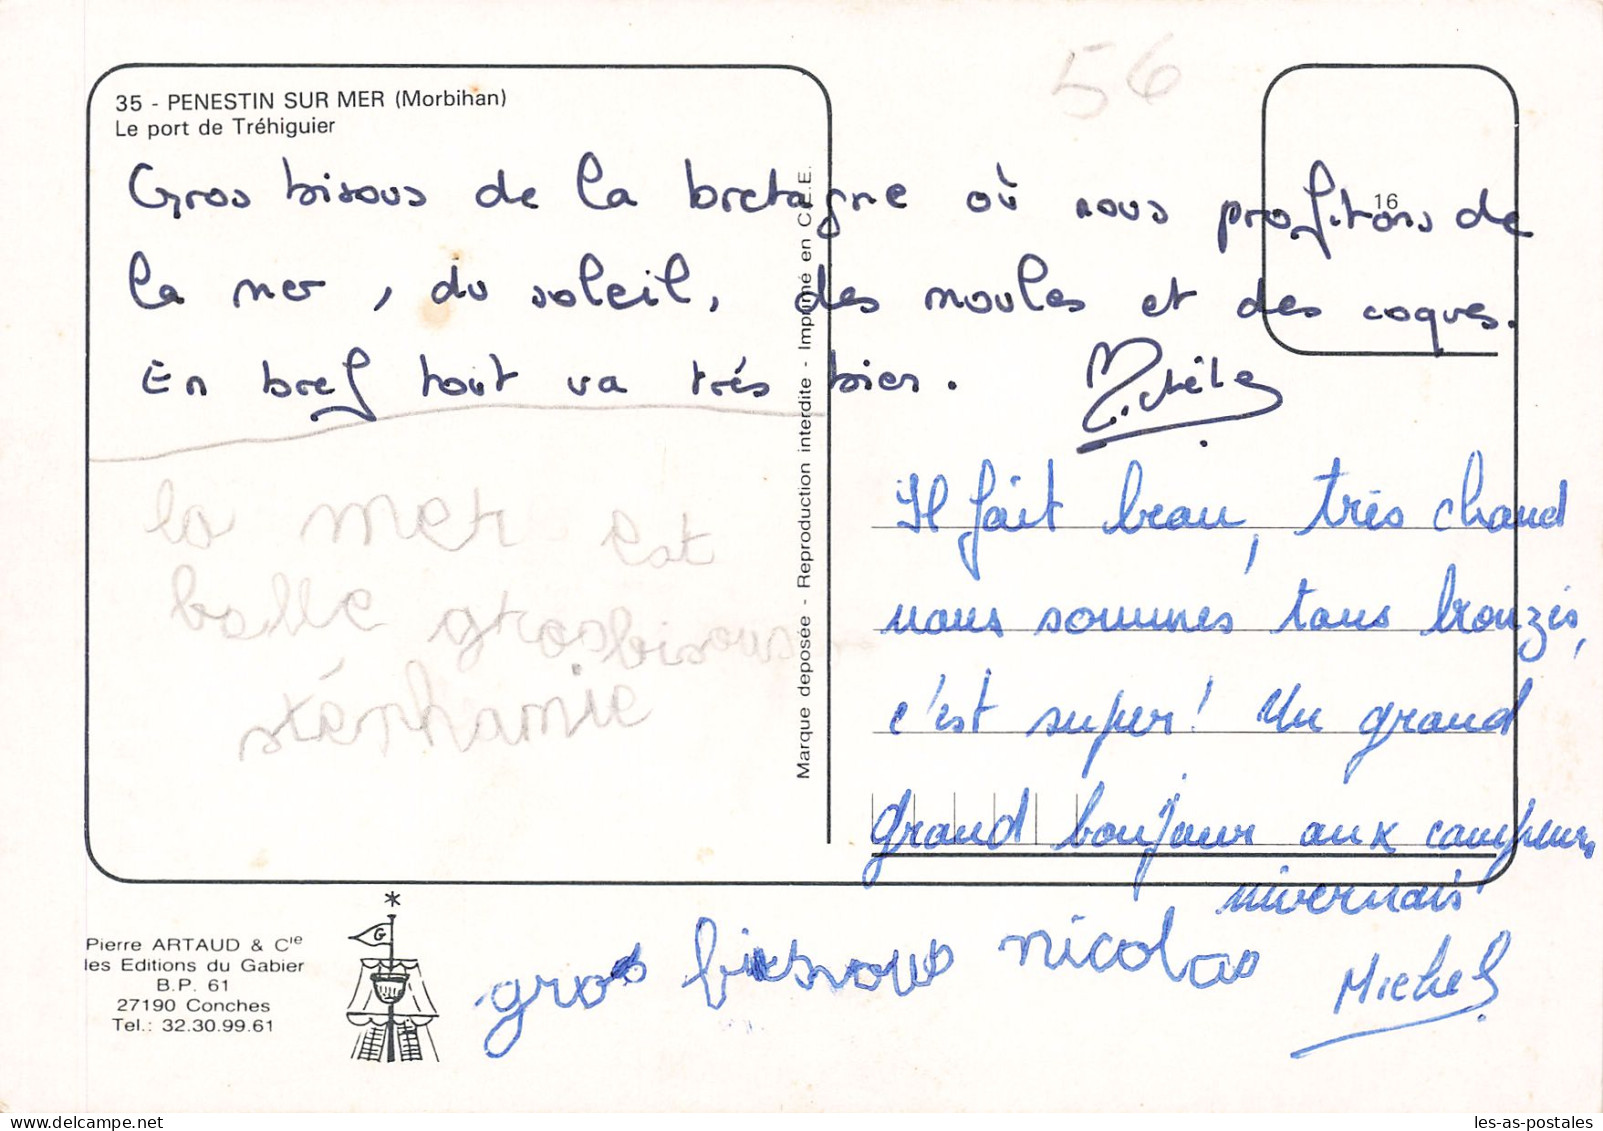 56
35 - PENESTIN SUR MER (Morbihan)
Le port de Tréhiguier
16
Gros bisous de la bretagne où nous profitons de
la mer, du soleil, des moules et des coques.
En bref tout va trés bien.
Michèle
la mer est
belle gros bisous
stéphanie
Marque deposée - Reproduction interdite - Imprimé en C.E.E.
Il fait beau, très chaud
nous sommes tous bronzés,
c'est super! Un grand
grand bonjour aux campeurs
nivernais
Michel
gros bisous nicolas
G
Pierre ARTAUD & Cie
les Editions du Gabier
B.P. 61
27190 Conches
Tel.: 32.30.99.61
les-as-postales